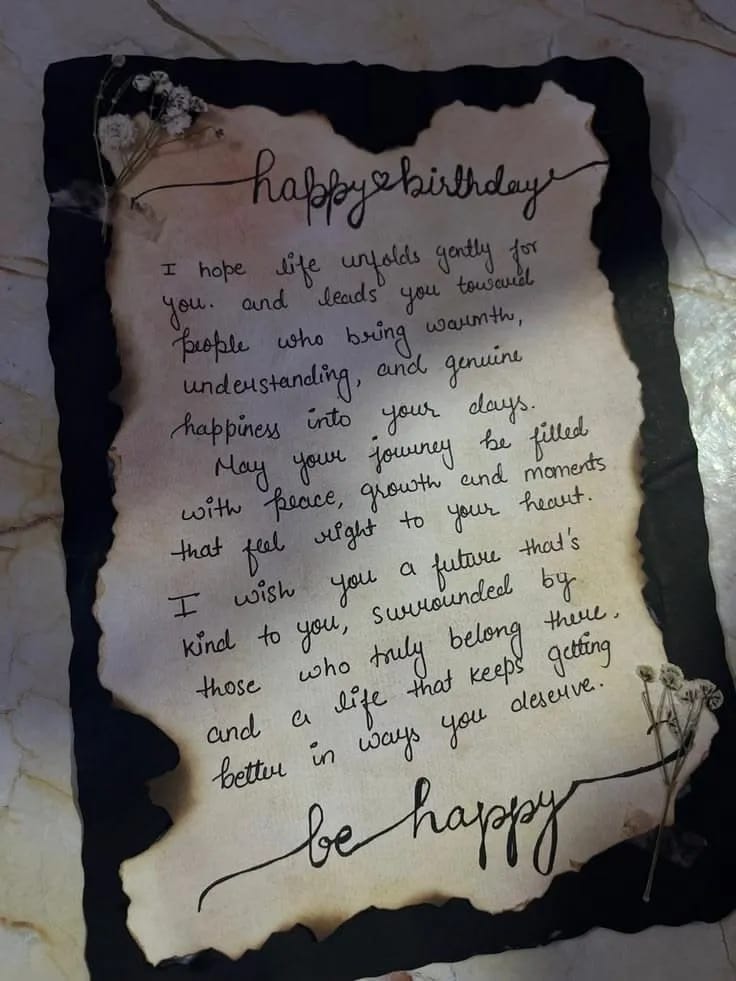 happy♡birthday
I hope life unfolds gently for
you. and leads you toward
people who bring warmth,
understanding, and genuine
happiness into your days.
May your journey be filled
with peace, growth and moments
that feel right to your heart.
I wish you a future that's
kind to you, surrounded by
those who truly belong there.
and a life that keeps getting
better in ways you deserve.
be happy